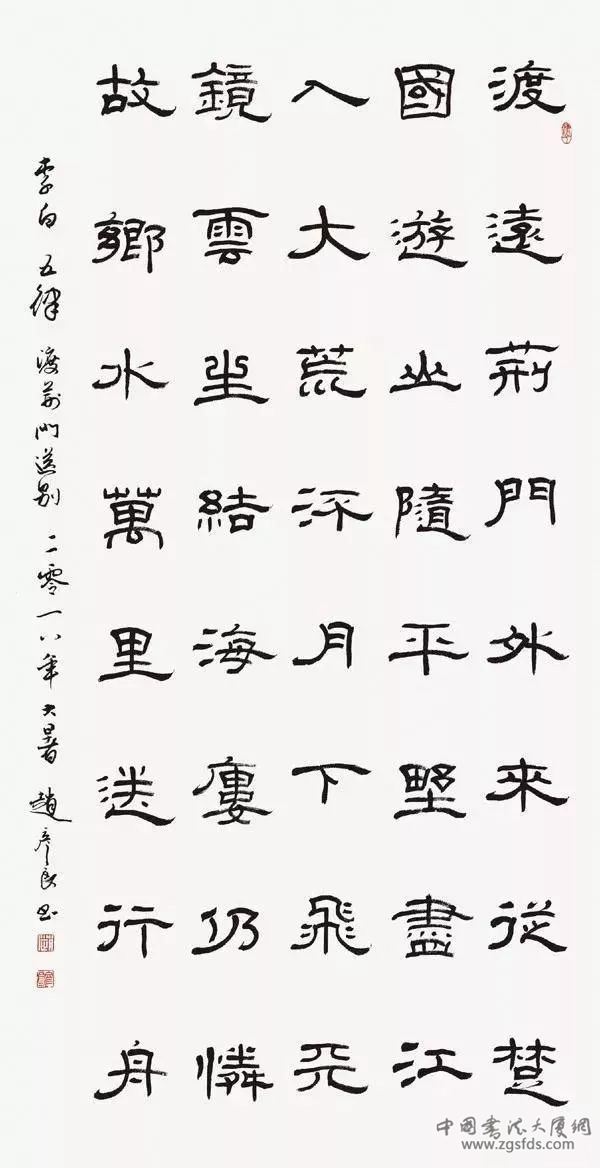 渡遠荊門外來從楚
國游山隨平野盡江
入大荒流月下飛天
鏡雲生結海樓仍憐
故鄉水萬里送行舟
李白 五律 渡荊門送別 二零一八年大暑 趙彥良書
中国書法大厦網
www.zgsfds.com